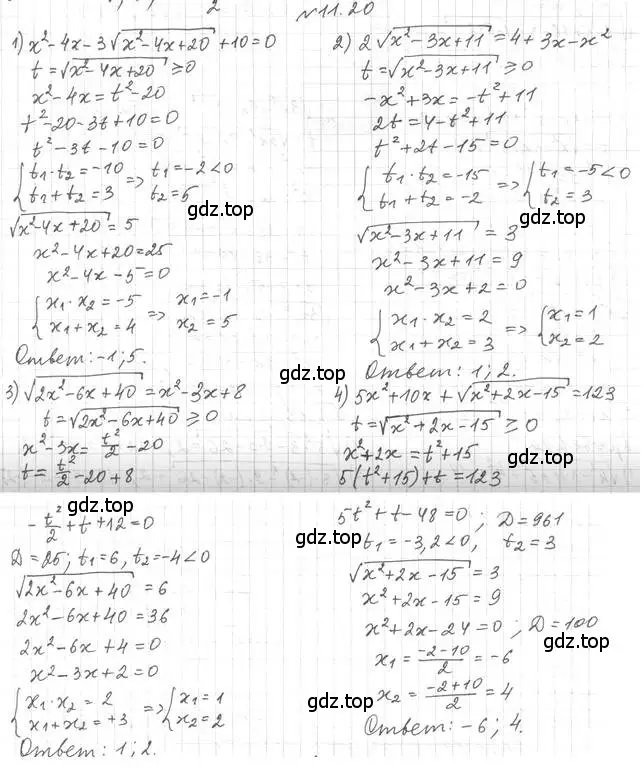 2
№11.20
1) x²-4x-3√(x²-4x+20)+10=0
t=√(x²-4x+20) ≥0
x²-4x=t²-20
t²-20-3t+10=0
t²-3t-10=0
{ t₁·t₂=-10
t₁+t₂=3 => t₁=-2<0
t₂=5
gdz.top
√(x²-4x+20)=5
x²-4x+20=25
x²-4x-5=0
{ x₁·x₂=-5
x₁+x₂=4 => x₁=-1
x₂=5
Ответ: -1; 5.
2) 2√(x²-3x+11)=4+3x-x²
t=√(x²-3x+11) ≥0
-x²+3x=-t²+11
2t=4-t²+11
gdz.top
t²+2t-15=0
{ t₁·t₂=-15
t₁+t₂=-2 => { t₁=-5<0
t₂=3
gdz.top
√(x²-3x+11)=3
x²-3x+11=9
x²-3x+2=0
{ x₁·x₂=2
x₁+x₂=3 => { x₁=1
x₂=2
Ответ: 1; 2.
gdz.top
3) √(2x²-6x+40)=x²-3x+8
t=√(2x²-6x+40) ≥0
x²-3x=t²/2-20
t=t²/2-20+8
gdz.top
-t²/2+t+12=0
D=25; t₁=6, t₂=-4<0
√(2x²-6x+40)=6
2x²-6x+40=36
2x²-6x+4=0
x²-3x+2=0
{ x₁·x₂=2
x₁+x₂=+3 => { x₁=1
x₂=2
Ответ: 1; 2.
4) 5x²+10x+√(x²+2x-15)=123
t=√(x²+2x-15) ≥0
x²+2x=t²+15
gdz.top
5(t²+15)+t=123
5t²+t-48=0; D=961
t₁=-3,2<0, t₂=3
gdz.top
√(x²+2x-15)=3
x²+2x-15=9
x²+2x-24=0; D=100
gdz.top
x₁=(-2-10)/2=-6
x₂=(-2+10)/2=4
gdz.top
Ответ: -6; 4.